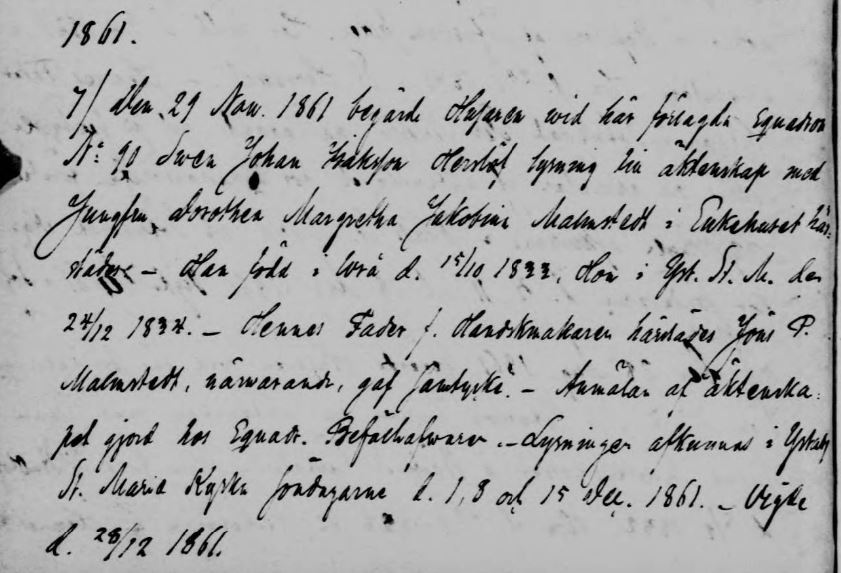 1861.
7/ Den 29 Nov. 1861 begärde Husaren wid här förlagda Equadron
N:o 90 Swen Johan Isakson Herslöf lysning till äktenskap med
Jungfru Dorothea Margretha Jakobina Malmstedt i Enkehuset här-
städes. – Han född i Wrå d. 15/10 1833, Hon i Yst. St. M. den
24/12 1834. – Hennes Fader f. Handskmakaren härstädes Jöns P.
Malmstedt, närwarande, gaf samtycke. – Anmälan at äktenska-
pet gjord hos Equadr. Befälhafwaren. – Lysningen afkunnas i Ystads
St. Maria Kyrka söndagarne d. 1, 8 och 15 Dec. 1861. – Vigde
d. 28/12 1861.